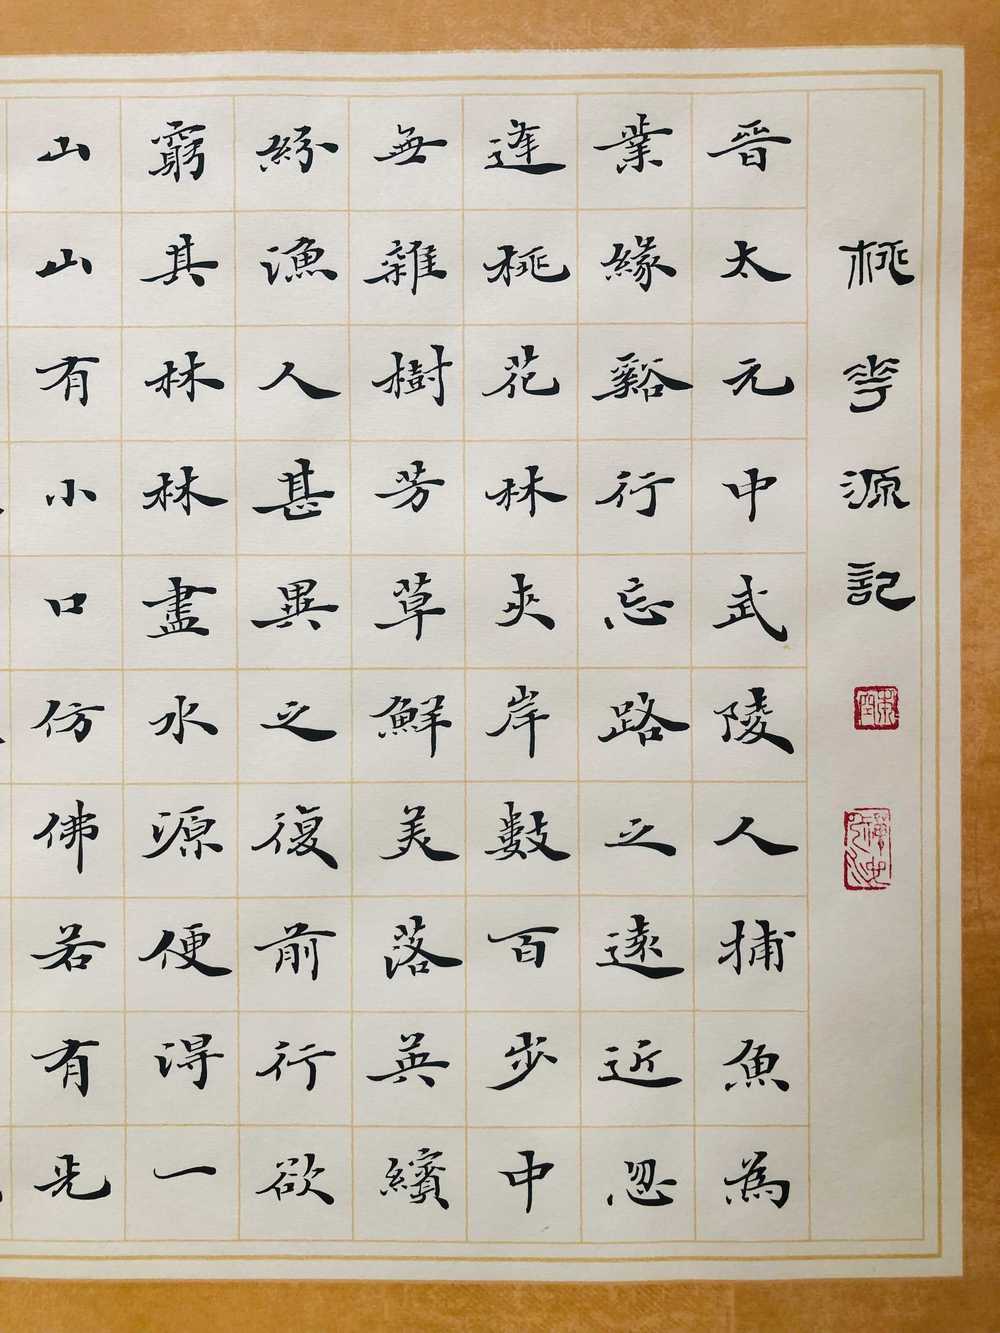 桃花源記
晉太元中武陵人捕魚為
業緣谿行忘路之遠近忽
逢桃花林夾岸數百步中
無雜樹芳草鮮美落英繽
紛漁人甚異之復前行欲
窮其林林盡水源便得一
山山有小口仿佛若有光